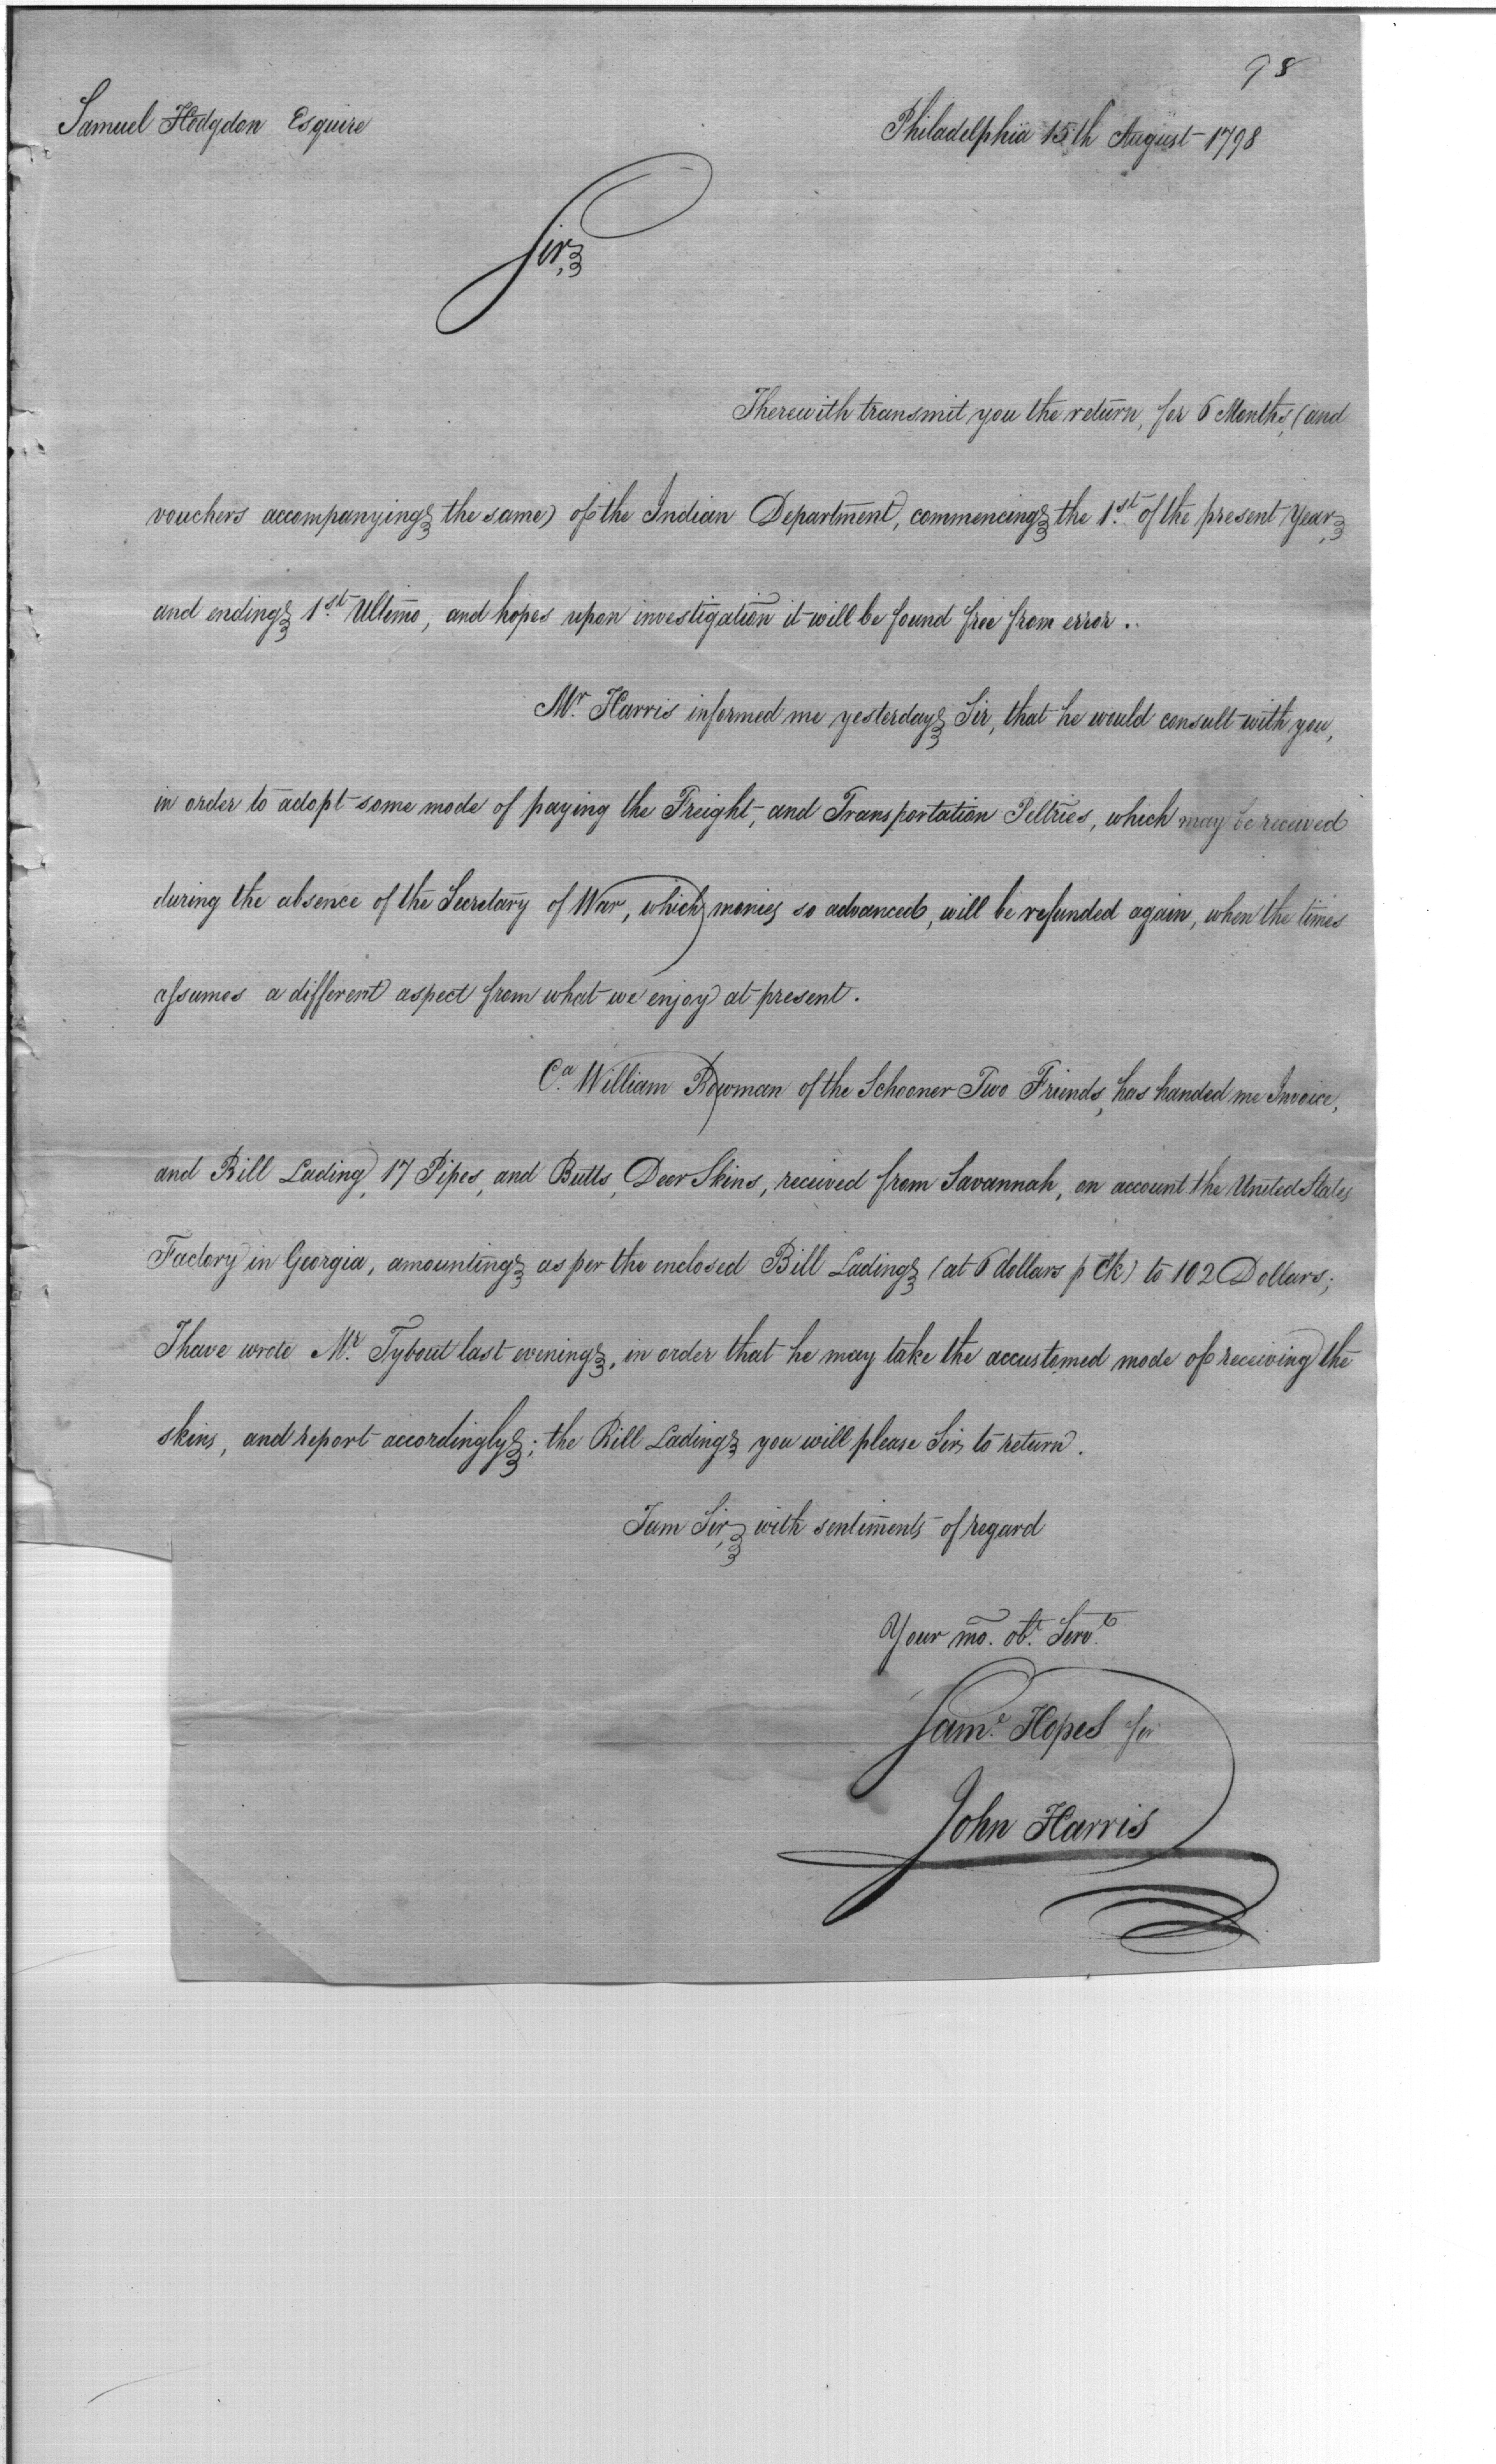 98
Samuel Hodgdon Esquire
Philadelphia 15th August 1798
Sir,
I herewith transmit you the return, for 6 Months, (and
vouchers accompanying the same) of the Indian Department, commencing the 1.st of the present Year,
and ending 1.st Ultimo, and hopes upon investigation it will be found free from error.
Mr. Harris informed me yesterday Sir, that he would consult with you,
in order to adopt some mode of paying the Freight, and Transportation Peltries, which may be received
during the absence of the Secretary of War, which monies so advanced, will be refunded again, when the times
assumes a different aspect from what we enjoy at present.
Ca. William Bowman of the Schooner Two Friends, has handed me Invoice,
and Bill Lading, 17 Pipes, and Butts, Deer Skins, received from Savannah, on account the United States
Factory in Georgia, amounting as per the enclosed Bill Lading (at 6 dollars p Ck) to 102 Dollars;
I have wrote Mr. Tybout last evening, in order that he may take the accustomed mode of receiving the
skins, and report accordingly; the Bill Lading you will please Sir, to return.
I am Sir, with sentiments of regard
Your mo. obt. Servt.
Saml. Hopes for
John Harris